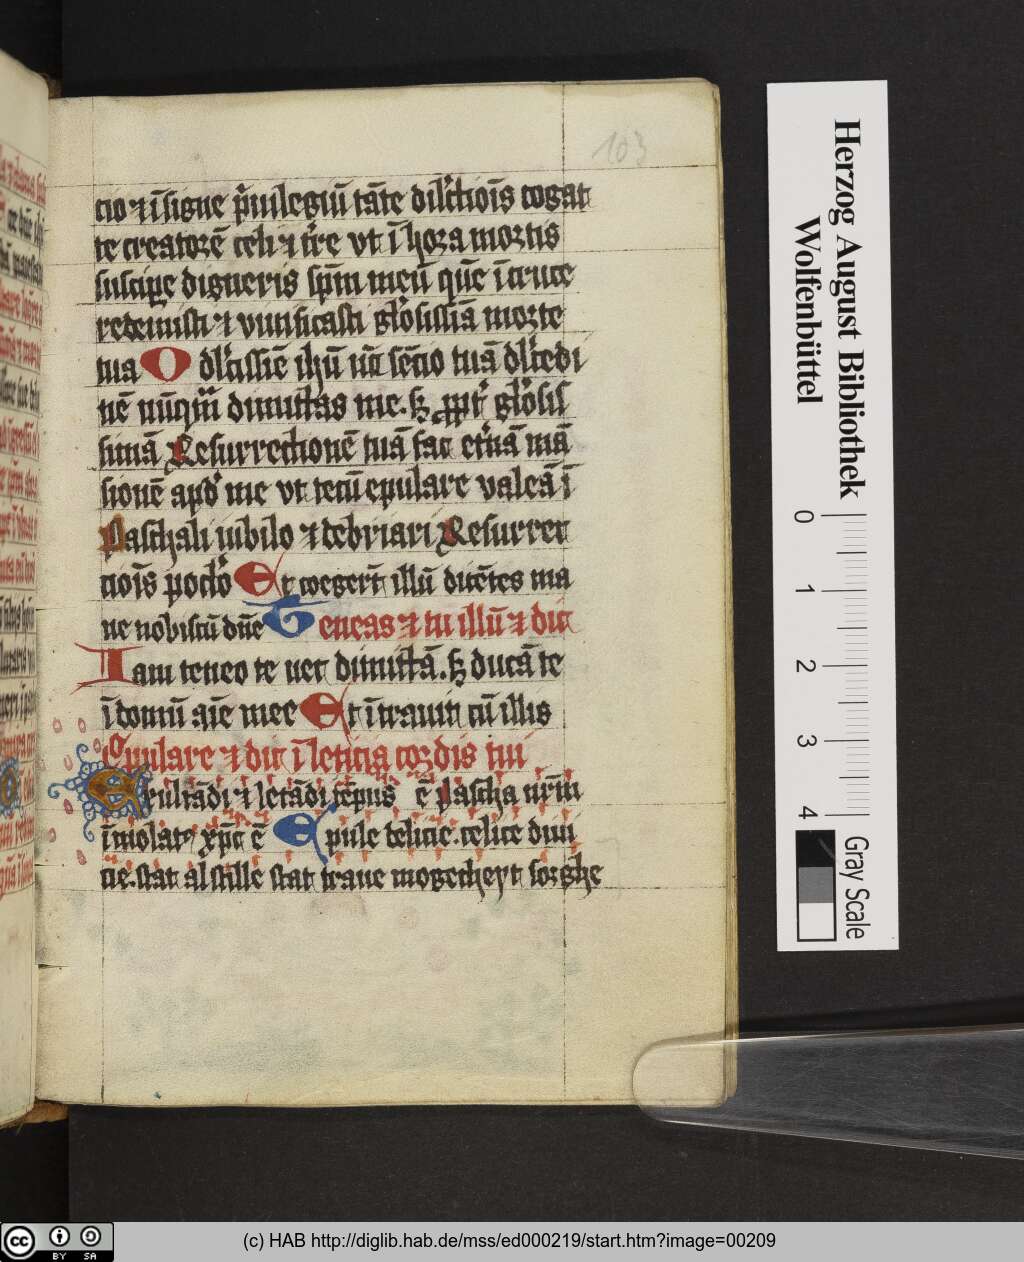 103
cio ⁊ ī signe p̄uilegiū tāte dil'ctiōis cogat
te creatorē celi ⁊ t̄re vt ī hora mortis
suscipe digneris sp̄m meū quē ī cruce
redemisti ⁊ viuificasti gl'osissiā morte
tua O dl'cissiē ihū
nē nūqm̄ dimittas me. gl'osis
simā Resurrectionē tuā fac et'nā mā
sionē apd' me vt tecū epulare valeā ī
Paschali iubilo ⁊ debriari Resurrec
ciōis poclo Et coegert̄ illū dicētes ma
ne nobiscū dn̄e Teneas ⁊ tu illū ⁊ dic
Iam teneo te nec dimittā. ducā te
ī domū aīe mee Et ītrauit cū illis
Epulare ⁊ dic ī leticia cordis tui
Exultādi ⁊ letādi tēpus ē pascha nrm̄
īmolat xp̄c ē Epule delicie. celice diui
cie. stat al stille stat traue mogecheyt sorghe
Herzog August Bibliothek
Wolfenbüttel
0 1 2 3 4
Gray Scale
cc BY SA
(c) HAB http://diglib.hab.de/mss/ed000219/start.htm?image=00209